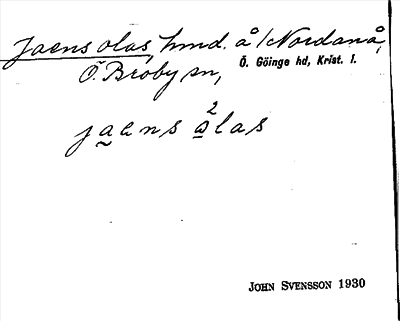 Jaens olas, hmd. å /Nordanå,
Ö. Broby sn, Ö. Göinge hd, Krist. l.
jaens ²olas
JOHN SVENSSON 1930